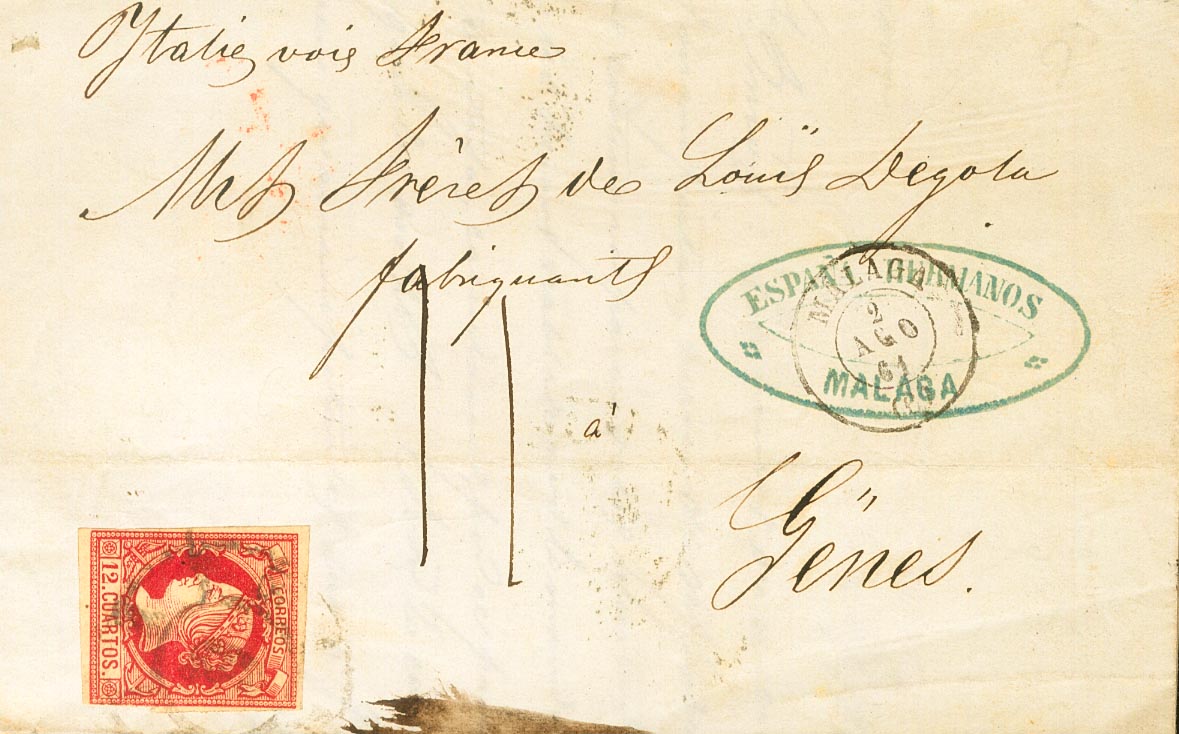 Italie voie France
Mrs Frères de Loüis Degola
fabriquants
ESPAÑA HERMANOS
MALAGA
MALAGA
2
AGO
61
à
Gënes.
12.CUARTOS.
CORREOS